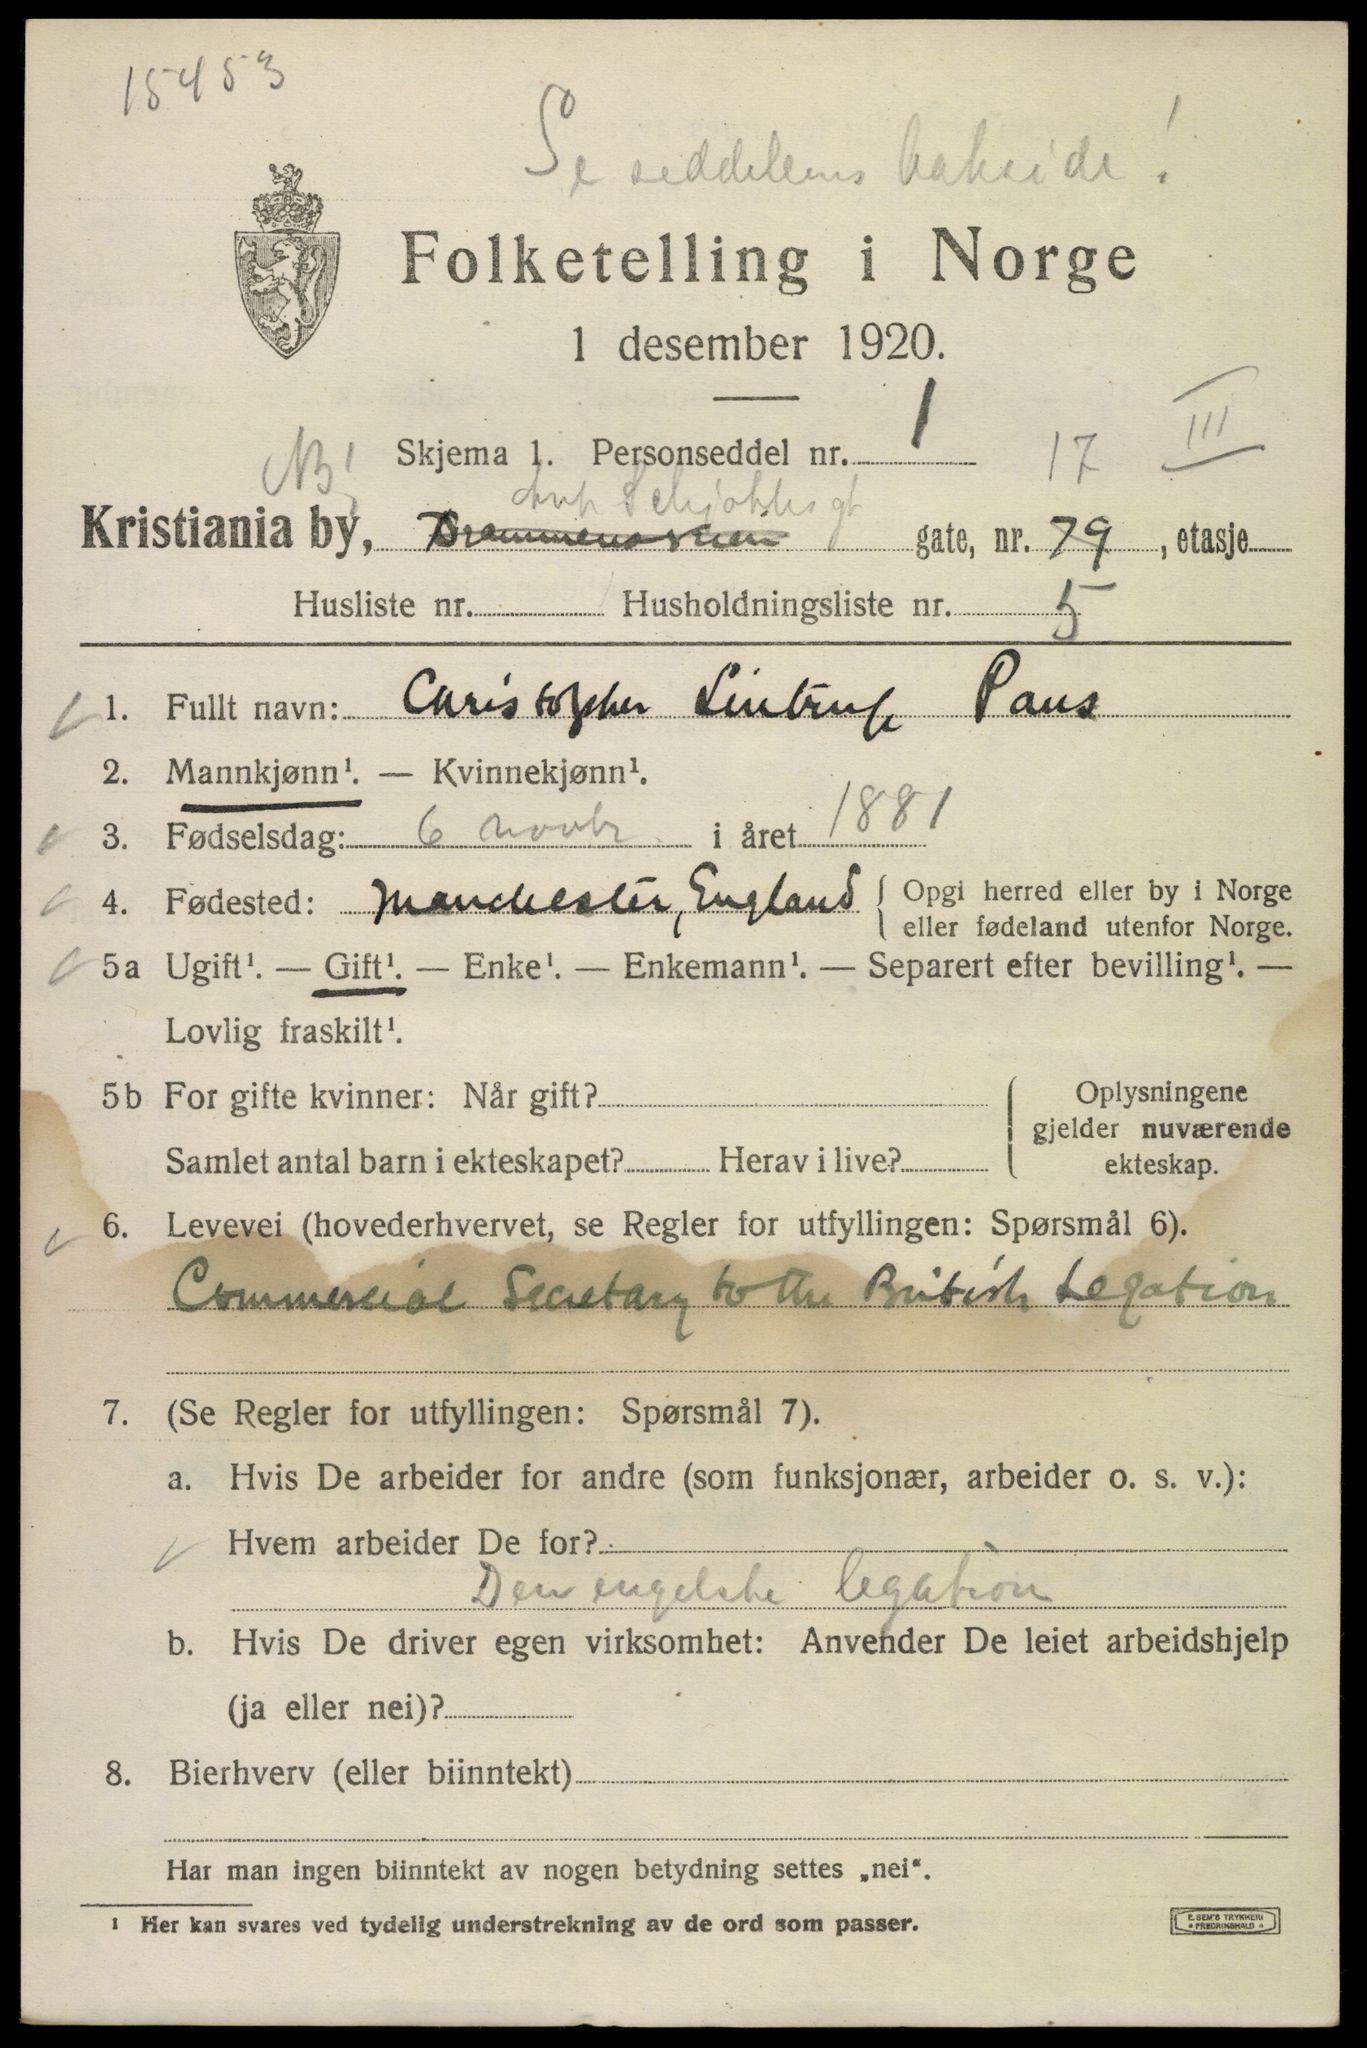 15453
Se seddelens bakside!
Folketelling i Norge
1 desember 1920.
Skjema 1. Personseddel nr. 1 17 III
NB!
Schjøtts gt
Kristiania by, Drammensveien gate, nr. 79, etasje
Husliste nr. Husholdningsliste nr. 5
1. Fullt navn: Christopher Lintrup Paus
2. Mannkjønn¹. — Kvinnekjønn¹.
3. Fødselsdag: 6 novbr i året 1881
4. Fødested: Manchester, England { Opgi herred eller by i Norge
eller fødeland utenfor Norge.
5a Ugift¹. — Gift¹. — Enke¹. — Enkemann¹. — Separert efter bevilling¹. —
Lovlig fraskilt¹.
5b For gifte kvinner: Når gift? Oplysningene
gjelder nuværende
Samlet antal barn i ekteskapet? Herav i live? ekteskap.
6. Levevei (hovederhvervet, se Regler for utfyllingen: Spørsmål 6).
Commercial Secretary to the British Legation
7. (Se Regler for utfyllingen: Spørsmål 7).
a. Hvis De arbeider for andre (som funksjonær, arbeider o. s. v.):
Hvem arbeider De for?
Den engelske legation
b. Hvis De driver egen virksomhet: Anvender De leiet arbeidshjelp
(ja eller nei)?
8. Bierhverv (eller biinntekt)
Har man ingen biinntekt av nogen betydning settes „nei“.
¹ Her kan svares ved tydelig understrekning av de ord som passer.
E. SEM'S TRYKKERI
FREDRIKSHALD